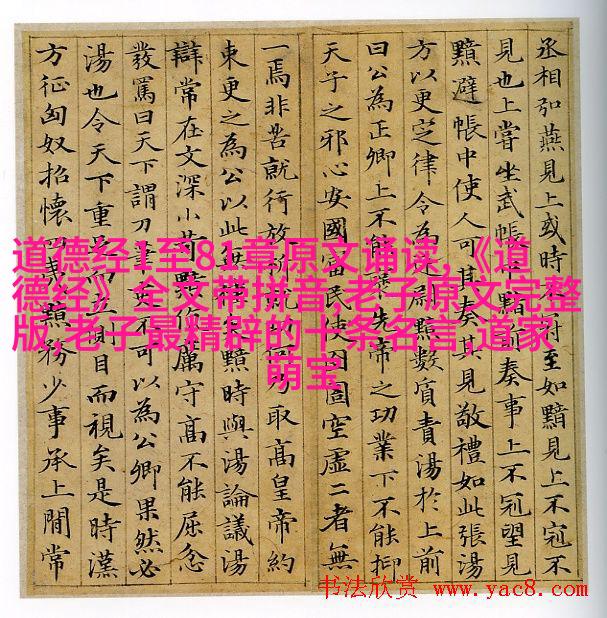 丞相弘燕見上或時冠至如黯見上不冠不
見也上嘗坐武帳中黯前奏事上不冠望見
黯避帳中使人可其奏其見敬禮如此張湯
方以更定律令為廷尉黯數質責湯於上前
曰公為正卿上不能襃先帝之功業下不能抑
天子之邪心安國富民使囹圄空虛二者無
一焉非苦就行放析就功何乃取高皇帝約
束更之為公以此無種矣黯時與湯論議湯
辯常在文深小苛黯伉厲守高不能屈忿
發罵曰天下謂刀筆吏不可以為公卿果然必
湯也令天下重足而立側目而視矣是時漢
方征匈奴招懷四夷黯務少事承上間常
道德经1至81章原文诵读,《道
德经》全文带拼音,老子原文完整
版,老子最精辟的十条名言,道家
萌宝
书法欣赏 www.yac8.com